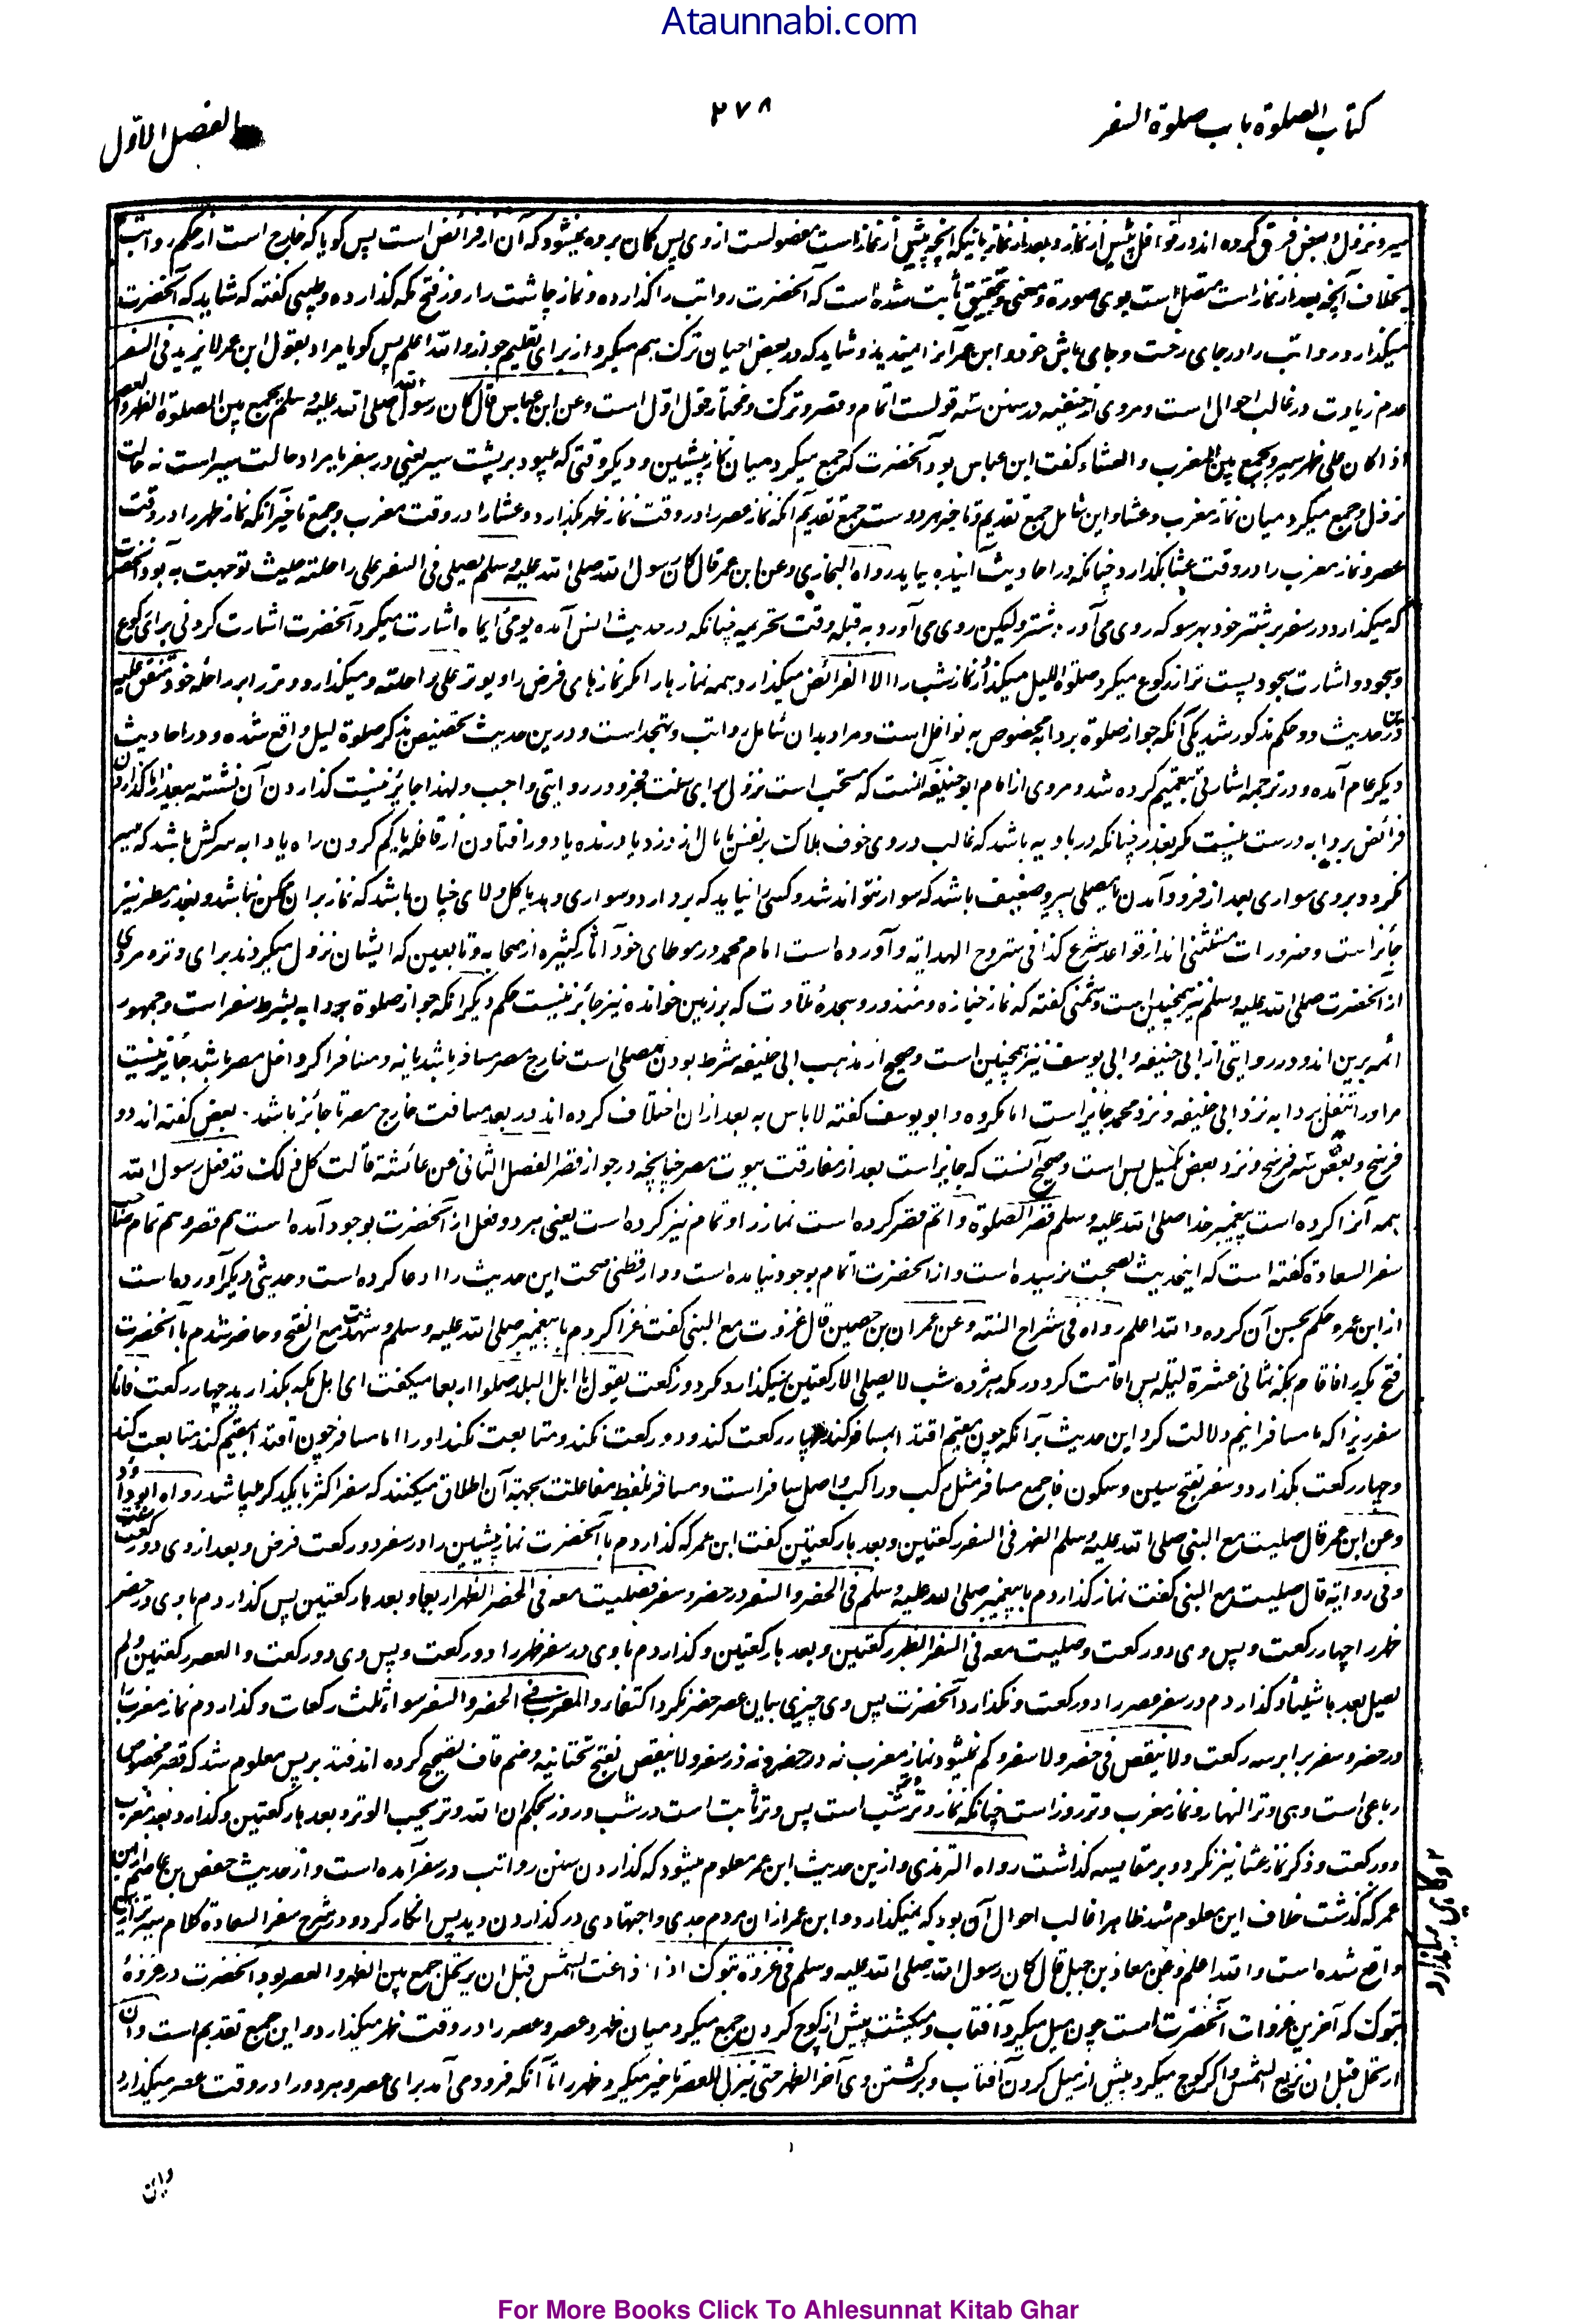 Ataunnabi.com
کتاب الصلوة باب صلوة السفر
۲۷۸
الفصل الاول
سیر و نزول و بعض فرق کرده اند در نوافل پیش از نماز و بعد از نماز بانیکه آنچه پیش از نماز است مفصولست از وی پس کمان برده نمیشود که آن از فرائض است پس کویا که خارج است از حکم رواتب
بخلاف آنچه بعد از نماز است متصل است بوی صورة و معنی و بتحقیق ثابت شده است که آنحضرت رواتب را کذارده و نماز چاشت را روز فتح مکه کذارده و طیبی کفته که شاید که آنحضرت
میکذارد رواتب را در جای رخت و جای باش خود و ابن عمر آنرا نمیدید و شاید که در بعض احیان ترک هم میکرد از برای تعلیم جواز و الله اعلم پس کویا مراد بقول ابن عمر لا یزید فی السفر
عدم زیادت در غالب احوال است و مروی از حنفیه در سنن سه قولست اتمام و قصر و ترک و مختار قول اول است وعن ابن عباس قال کان رسول الله صلی الله علیه وسلم یجمع بین الصلوة الظهر و العصر
اذا کان علی ظهر سیر ویجمع بین المغرب و العشاء کفت ابن عباس بود آنحضرت که جمع میکرد میان نماز پیشین و دیکر وقتی که میبود بر پشت سیر یعنی در سفر یا مراد حالت سیر است نه حالت
نزول و جمع میکرد میان نماز مغرب و عشا و این شامل جمع تقدیم و تاخیر هر دو ست جمع تقدیم آنکه نماز عصر را در وقت نماز ظهر بکذارد و عشا را در وقت مغرب و جمع تاخیر آنکه نماز ظهر را در وقت
عصر و نماز مغرب را در وقت عشا بکذارد چنانکه در احادیث آینده بیاید رواه البخاری وعن ابن عمر قال کان رسول الله صلی الله علیه وسلم یصلی فی السفر علی راحلته حیث توجهت به بود آنحضرت
که میکذارد در سفر بر شتر خود بهر سو که روی می آورد شتر ولیکن روی می آورد به قبله وقت تحریمه چنانکه در حدیث انس آمده یومئ ایماء اشارت میکرد آنحضرت اشارت کردنی برای رکوع
و سجود و اشارت سجود پست تر از رکوع میکرد صلوة اللیل میکذارد نماز شب را الا الفرائض میکذارد همه نمازها را مکر نمازهای فرض را ویوتر علی راحلته و میکذارد وتر را بر راحله خود متفق علیه
درین حدیث دو حکم مذکور شد یکی آنکه جواز صلوة بر دابه مخصوص به نوافل است و مراد بدان شامل رواتب و تهجد است و درین حدیث تخصیص بذکر صلوة لیل واقع شده و در احادیث
دیکر عام آمده و در ترجمه اشارتی بتعمیم کرده شد و مروی از امام ابو حنیفه آنست که مستحب است نزول برای سنت فجر و در روایتی واجب و لهذا جائز نیست کذاردن آن نشسته بیعذر اما کذاردن
فرائض بر دابه درست نیست مکر بعذر چنانکه در بادیه باشد که غالب در وی خوف هلاک بر نفس یا مال از دزد یا درنده یا دور افتادن از قافله یا کم کردن راه یا دابه سرکش باشد که میسر
نکردد بر وی سواری بعد از فرود آمدن یا مصلی پیر و ضعیف باشد که سوار نتواند شد و کسی را نیابد که بردارد و سواری دهد یا کل و لای چنان باشد که نماز بر آن ممکن نباشد و بعذر مطر نیز
جائز است و ضرورات مستثنی اند از قواعد شرع کذا فی شروح الهدایة و آورده است امام محمد در موطای خود آثار کثیره از صحابه و تابعین که ایشان نزول میکردند برای وتر و مروی
از آنحضرت صلی الله علیه وسلم نیز همچنین است و شمنی کفته که نماز جنازه و منذور و سجدهٔ تلاوت که بر زمین خوانده نیز جائز نیست حکم دیکر آنکه جواز صلوة بر دابه بشرط سفر است و جمهور
ائمه برین اند و در روایتی از ابی حنیفه و ابی یوسف نیز همچنین است و صحیح از مذهب ابی حنیفه شرط بودن مصلی است خارج مصر مسافر باشد یا نه و مسافر اکر داخل مصر باشد جائز نیست
مر او را تنفل بر دابه نزد ابی حنیفه و نزد محمد جائز است اما مکروه و ابو یوسف کفته لا باس به بعد ازان اختلاف کرده اند در بعد مسافت خارج مصر تا جائز باشد بعض کفته اند دو
فرسخ و بعض سه فرسخ و نزد بعض یکمیل بس است و صحیح آنست که جائز است بعد از مفارقت بیوت مصر چنانچه در جواز قصر الفصل الثانی عن عائشة قالت کل ذلک قد فعل رسول الله
همه آنرا کرده است پیغمبر خدا صلی الله علیه وسلم قصر الصلوة و اتم قصر کرده است نماز را و تمام نیز کرده است یعنی هر دو فعل از آنحضرت بوجود آمده است هم قصر و هم تمام صاحب
سفر السعادة کفته است که این حدیث بصحت نرسیده است و از آنحضرت اتمام بوجود نیامده است و دارقطنی صحت این حدیث را ادعا کرده است و حدیثی دیکر آورده است
از ابن عمر و حکم بحسن آن کرده و الله اعلم رواه فی شرح السنة وعن عمران بن حصین قال غزوت مع النبی کفت غزا کردم با پیغمبر صلی الله علیه وسلم وشهدت مع الفتح و حاضر شدم با آنحضرت
فتح مکه را فاقام بمکة ثمانی عشرة لیلة پس اقامت کرد در مکه هژده شب لا یصلی الا رکعتین نمیکذارد مکر دو رکعت یقول یا اهل البلد صلوا اربعا میکفت ای اهل مکه بکذارید چهار رکعت فانا
سفر زیرا که ما مسافرانیم دلالت کرد این حدیث بر آنکه چون مقیم اقتدا بمسافر کند چهار رکعت کند و دو رکعت نکند و متابعت نکند او را اما مسافر چون اقتدا بمقیم کند متابعت کند
و چهار رکعت بکذارد و سفر بفتح سین و سکون فا جمع مسافر مثل رکب و راکب و اصل سافر است و مسافر بلفظ مفاعلت بجهة آن اطلاق میکنند که سفر اکثر با یکدیکر میباشد رواه ابو داؤد
وعن ابن عمر قال صلیت مع النبی صلی الله علیه وسلم الظهر فی السفر رکعتین وبعدها رکعتین کفت ابن عمر که کذاردم با آنحضرت نماز پیشین را در سفر دو رکعت فرض و بعد از وی دو رکعت سنت
وفی روایة قال صلیت مع النبی کفت نماز کذاردم با پیغمبر صلی الله علیه وسلم فی الحضر والسفر در حضر و سفر فصلیت معه فی الحضر الظهر اربعا وبعدها رکعتین پس کذاردم با وی در حضر
ظهر را چهار رکعت و پس وی دو رکعت وصلیت معه فی السفر الظهر رکعتین وبعدها رکعتین و کذاردم با وی در سفر ظهر را دو رکعت و پس وی دو رکعت والعصر رکعتین ولم
یصل بعدها شیئا و کذاردم در سفر عصر را دو رکعت و نکذارد آنحضرت پس وی چیزی بیان عصر حضر نکرد اکتفاء والمغرب فی الحضر والسفر سواء ثلث رکعات و کذاردم نماز مغرب را
در حضر و سفر برابر سه رکعت ولا ینقص فی حضر ولا سفر و کم نمیشود نماز مغرب نه در حضر و نه در سفر ولا ینقص بفتح تحتانیه وضم قاف تصحیح کرده اند فتدبر پس معلوم شد که قصر مخصوص
رباعی است وهی وتر النهار و نماز مغرب وتر روز است چنانکه نماز وتر وتر شب است پس وتر ثابت است در شب و روز بحکم ان الله وتر یحب الوتر وبعدها رکعتین و کذارد بعد مغرب
دو رکعت و ذکر نماز عشا نیز نکرد و بر مقایسه کذاشت رواه الترمذی و ازین حدیث ابن عمر معلوم میشود که کذاردن سنن رواتب در سفر آمده است و از حدیث حفص بن عاصم از ابن
عمر که کذشت خلاف این معلوم شد ظاهرا غالب احوال آن بود که نمیکذارد و ابن عمر ازان مردم جدی و اجتهادی در کذاردن دید پس انکار کرد و در شرح سفر السعادة کلام
واقع شده است و الله اعلم وعن معاذ بن جبل قال کان رسول الله صلی الله علیه وسلم فی غزوة تبوک اذا زاغت الشمس قبل ان یرتحل جمع بین الظهر والعصر بود آنحضرت در غزوهٔ
تبوک که آخرین غزوات آنحضرت است چون میل میکرد آفتاب و میکشت پیش از کوچ کردن جمع میکرد میان ظهر و عصر و عصر را در وقت ظهر میکذارد و این جمع تقدیم است وان
ارتحل قبل ان تزیغ الشمس و اکر کوچ میکرد پیش از میل کردن آفتاب و برکشتن وی آخر الظهر حتی ینزل للعصر تاخیر میکرد ظهر را تا آنکه فرود می آمد برای عصر و هر دو را در وقت عصر میکذارد
For More Books Click To Ahlesunnat Kitab Ghar